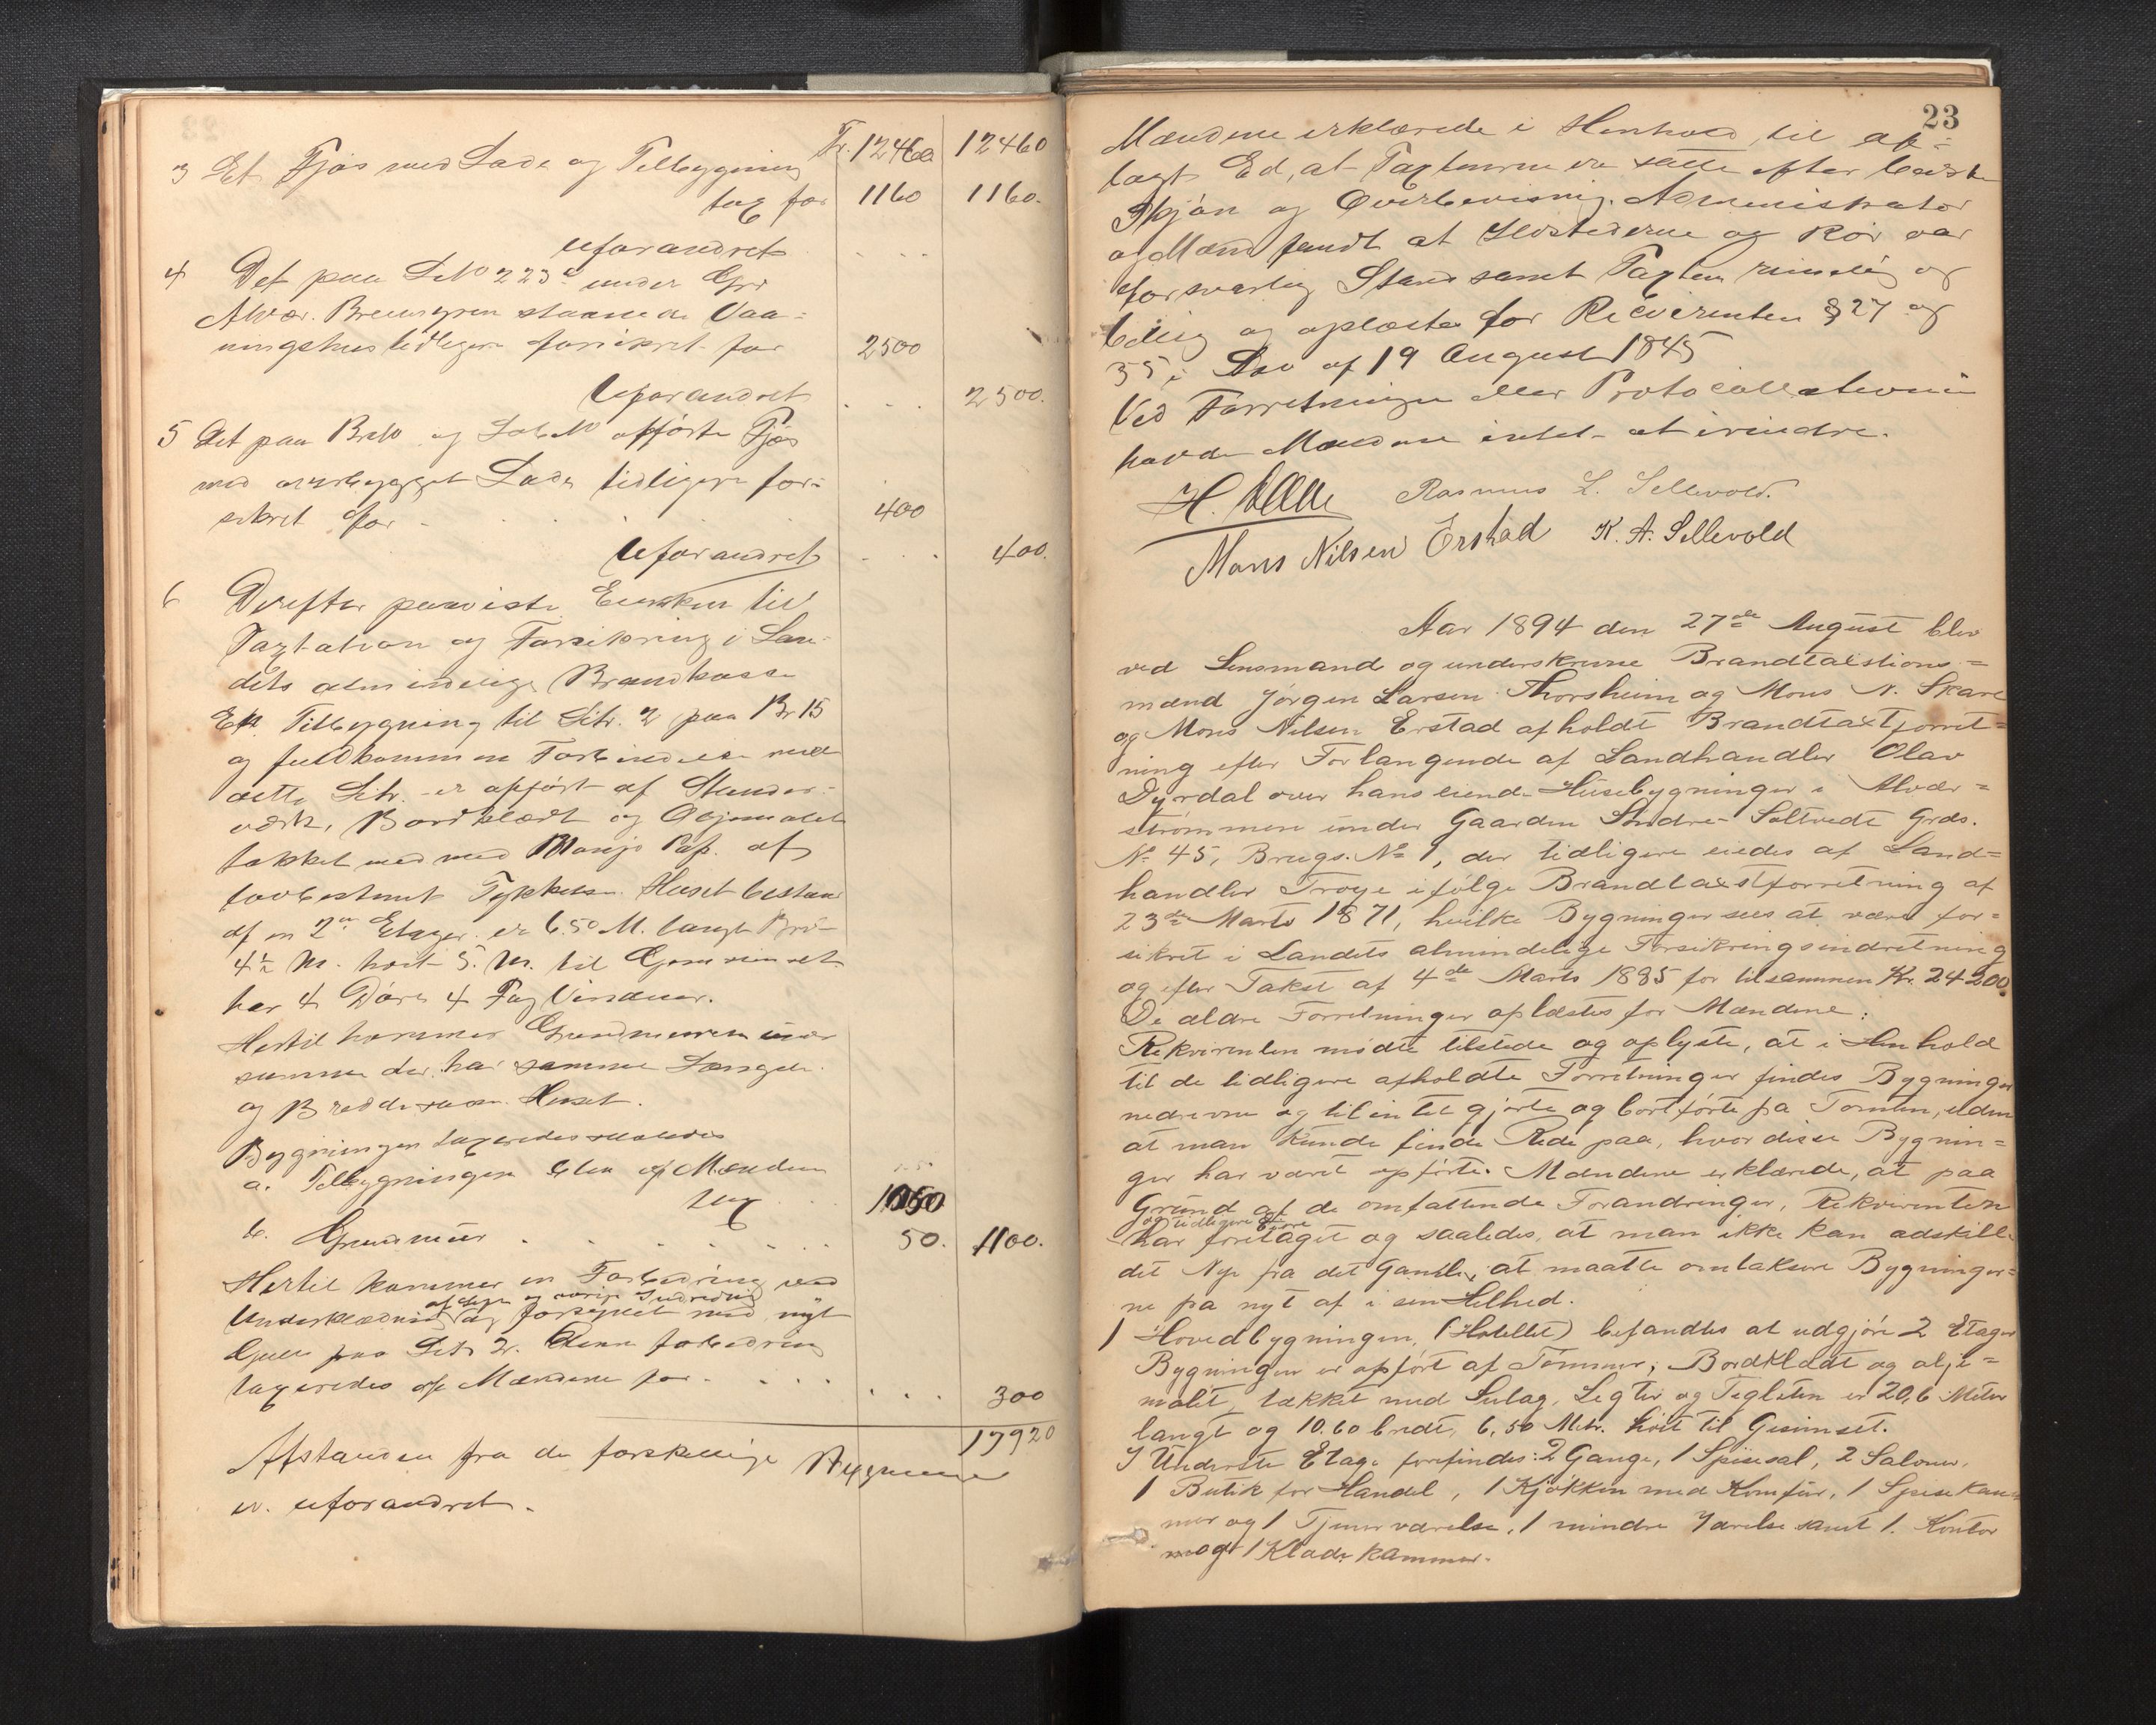 Fr. 12460 12460
3 Et Fjøs med Lade og Tilbygning
tax for 1160 1160.
uforandret . . .
4 Det paa L No 223 under Grd
Alvær. Brennegren staaende Vaa=
ningshus tidligere forsikret for 2500
Uforandret . . . 2500.
5 Det paa BrNo og LøbeNo opførte Fjøs
med overbygget Lade tidligere for=
sikret for . . . 400
Uforandret . . . 400.
6 Derefter paaviste Enken til
Taxtation og Forsikring i Lan=
dets almindelige Brandkasse
En Tilbygning til Litr. 2 paa Br 15
og fuldkommen Forbindelse med
dette Litr. er opført af Stender=
værk, Bordklædt og Oljemalet
tækket med med Pap. af
lovbestemt Tykkelse. Huset bestaar
af en 2 Etager. er 6.50 M. langt Bre-
4½ M. høit 5. M. til Gesimset
har 4 Døre 4 Fag Vinduer.
Hertil kommer Grundmuren under
samme der har samme Længde
og Bredde som Huset.
Bygningen taxeredes saaledes
a. Tilbygningen blev af Mændene
tax . . 1050
b. Grundmur . . . . . . . 50. 1100.
Hertil kommer en Forbedring ved
af og øvrige Indredning
Underklædning og forsynet med nyt
Gulv paa Litr 2. Denne forbedring
taxeredes af Mændene for . . . . . . . 300
17920
Afstanden fra de forskjellige Bygninger
er uforandret.
23
Mændene erklærede i Henhold til af=
lagt Ed, at Taxterne er satte efter bedste
Skjøn og Overbevisning. Administrator
og Mænd fandt at Ildstederne og Rør var
forsvarlig Stand samt Taxten rimelig og
billig og oplæste for Reqvirenten § 27 og
35 i Lov af 19 August 1845
Ved Forretningen eller Protocollationen
havde Mændene intet at erindre.
H. Rasmus L. Sellevold.
Mons Nilsen Erstad K. A. Sellevold
Aar 1894 den 27de August blev
ved Lensmand og underskrevne Brandtakstions=
mænd Jørgen Larsen Thorsheim og Mons N. Skare
og Mons Nilsen Erstad afholdt Brandtaxtforret=
ning efter Forlangende af Landhandler Olav
Dyrdal over hans eiende Husebygninger i Alvær=
strømmen under Gaarden Søndre-Saltvedt Grds.
No 45, Brugs. No 1, der tidligere eiedes af Land=
handler Troye ifølge Brandtaxtforretning af
23de Marts 1871, hvilke Bygninger sees at være for=
sikret i Landets almindelige Forsikringsindretning
og efter Takst af 4de Marts 1885 for tilsammen Kr. 24200.
De ældre Forretninger oplæstes for Mændene:
Rekvirenten mødte tilstede og oplyste, at i Henhold
til de tidligere afholdte Forretninger findes Bygninger
nedrevne og tilintetgjorte og bortførte fra Tomten, uden
at man kunde finde Rede paa, hvor disse Bygnin=
ger har været opførte. Mændene erklærede, at paa
Grund af de omfattende Forandringer, Rekvirenten
og tidligere Eiere
har foretaget og saaledes, at man ikke kan adskille
det Nye fra det Gamle, at maatte omtaksere Bygninger=
ne pa nyt af i sin Helhed.
1 Hovedbygningen, (Hotellet) befandtes at udgjøre 2 Etager
Bygningen er opført af Tømmer, Bordklædt og olje=
malet, tækket med Sutag, Legter og Teglsten er 20,6 Meter
langt og 10.60 bredt, 6,50 Metr. høit til Gesimset.
I Underste Etage forefindes: 2 Gange, 1 Spisesal, 2 Saloner,
1 Butik for Handel, 1 Kjøkken med Komfur, 1 Spisekam
mer og 1 Tjenerværelse, 1 mindre Værelse samt 1. Kontor
og 1 Klædekammer.